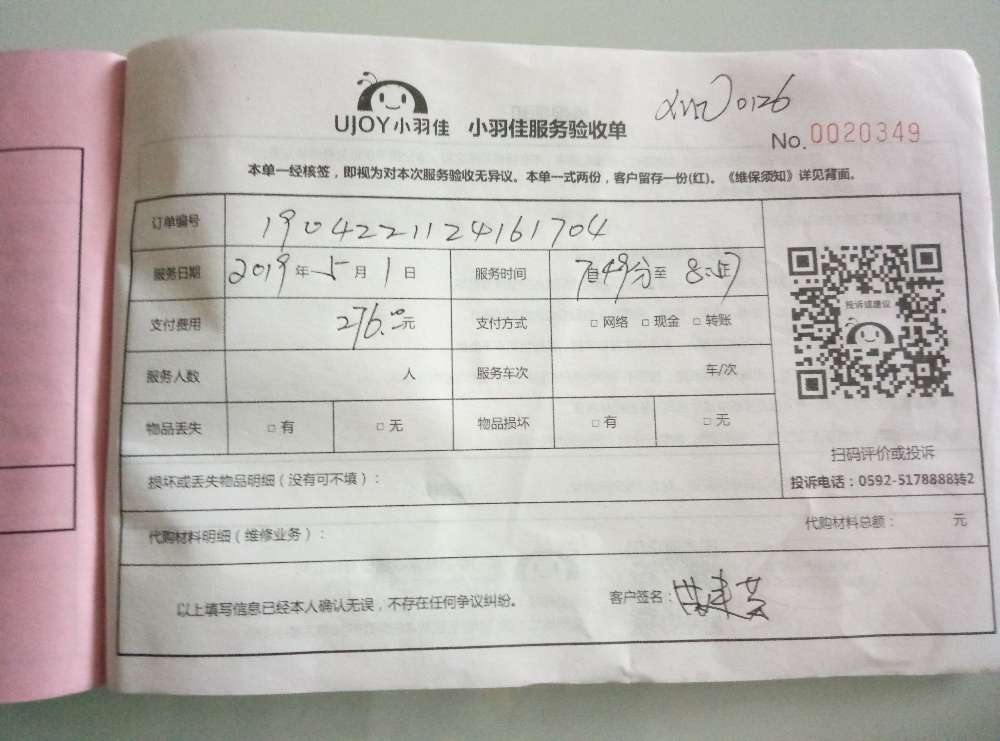 0126
UJOY小羽佳 小羽佳服务验收单
No.0020349
本单一经核签，即视为对本次服务验收无异议。本单一式两份，客户留存一份(红)。《维保须知》详见背面。
订单编号 1904221124161704
服务日期 2019年5月1日 服务时间 49分至
支付费用 276.00元 支付方式 □网络 □现金 □转账
服务人数 人 服务车次 车/次
物品丢失 □有 □无 物品损坏 □有 □无
投诉或建议
扫码评价或投诉
投诉电话：0592-5178888转2
损坏或丢失物品明细（没有可不填）：
代购材料明细（维修业务）： 代购材料总额： 元
以上填写信息已经本人确认无误，不存在任何争议纠纷。 客户签名：